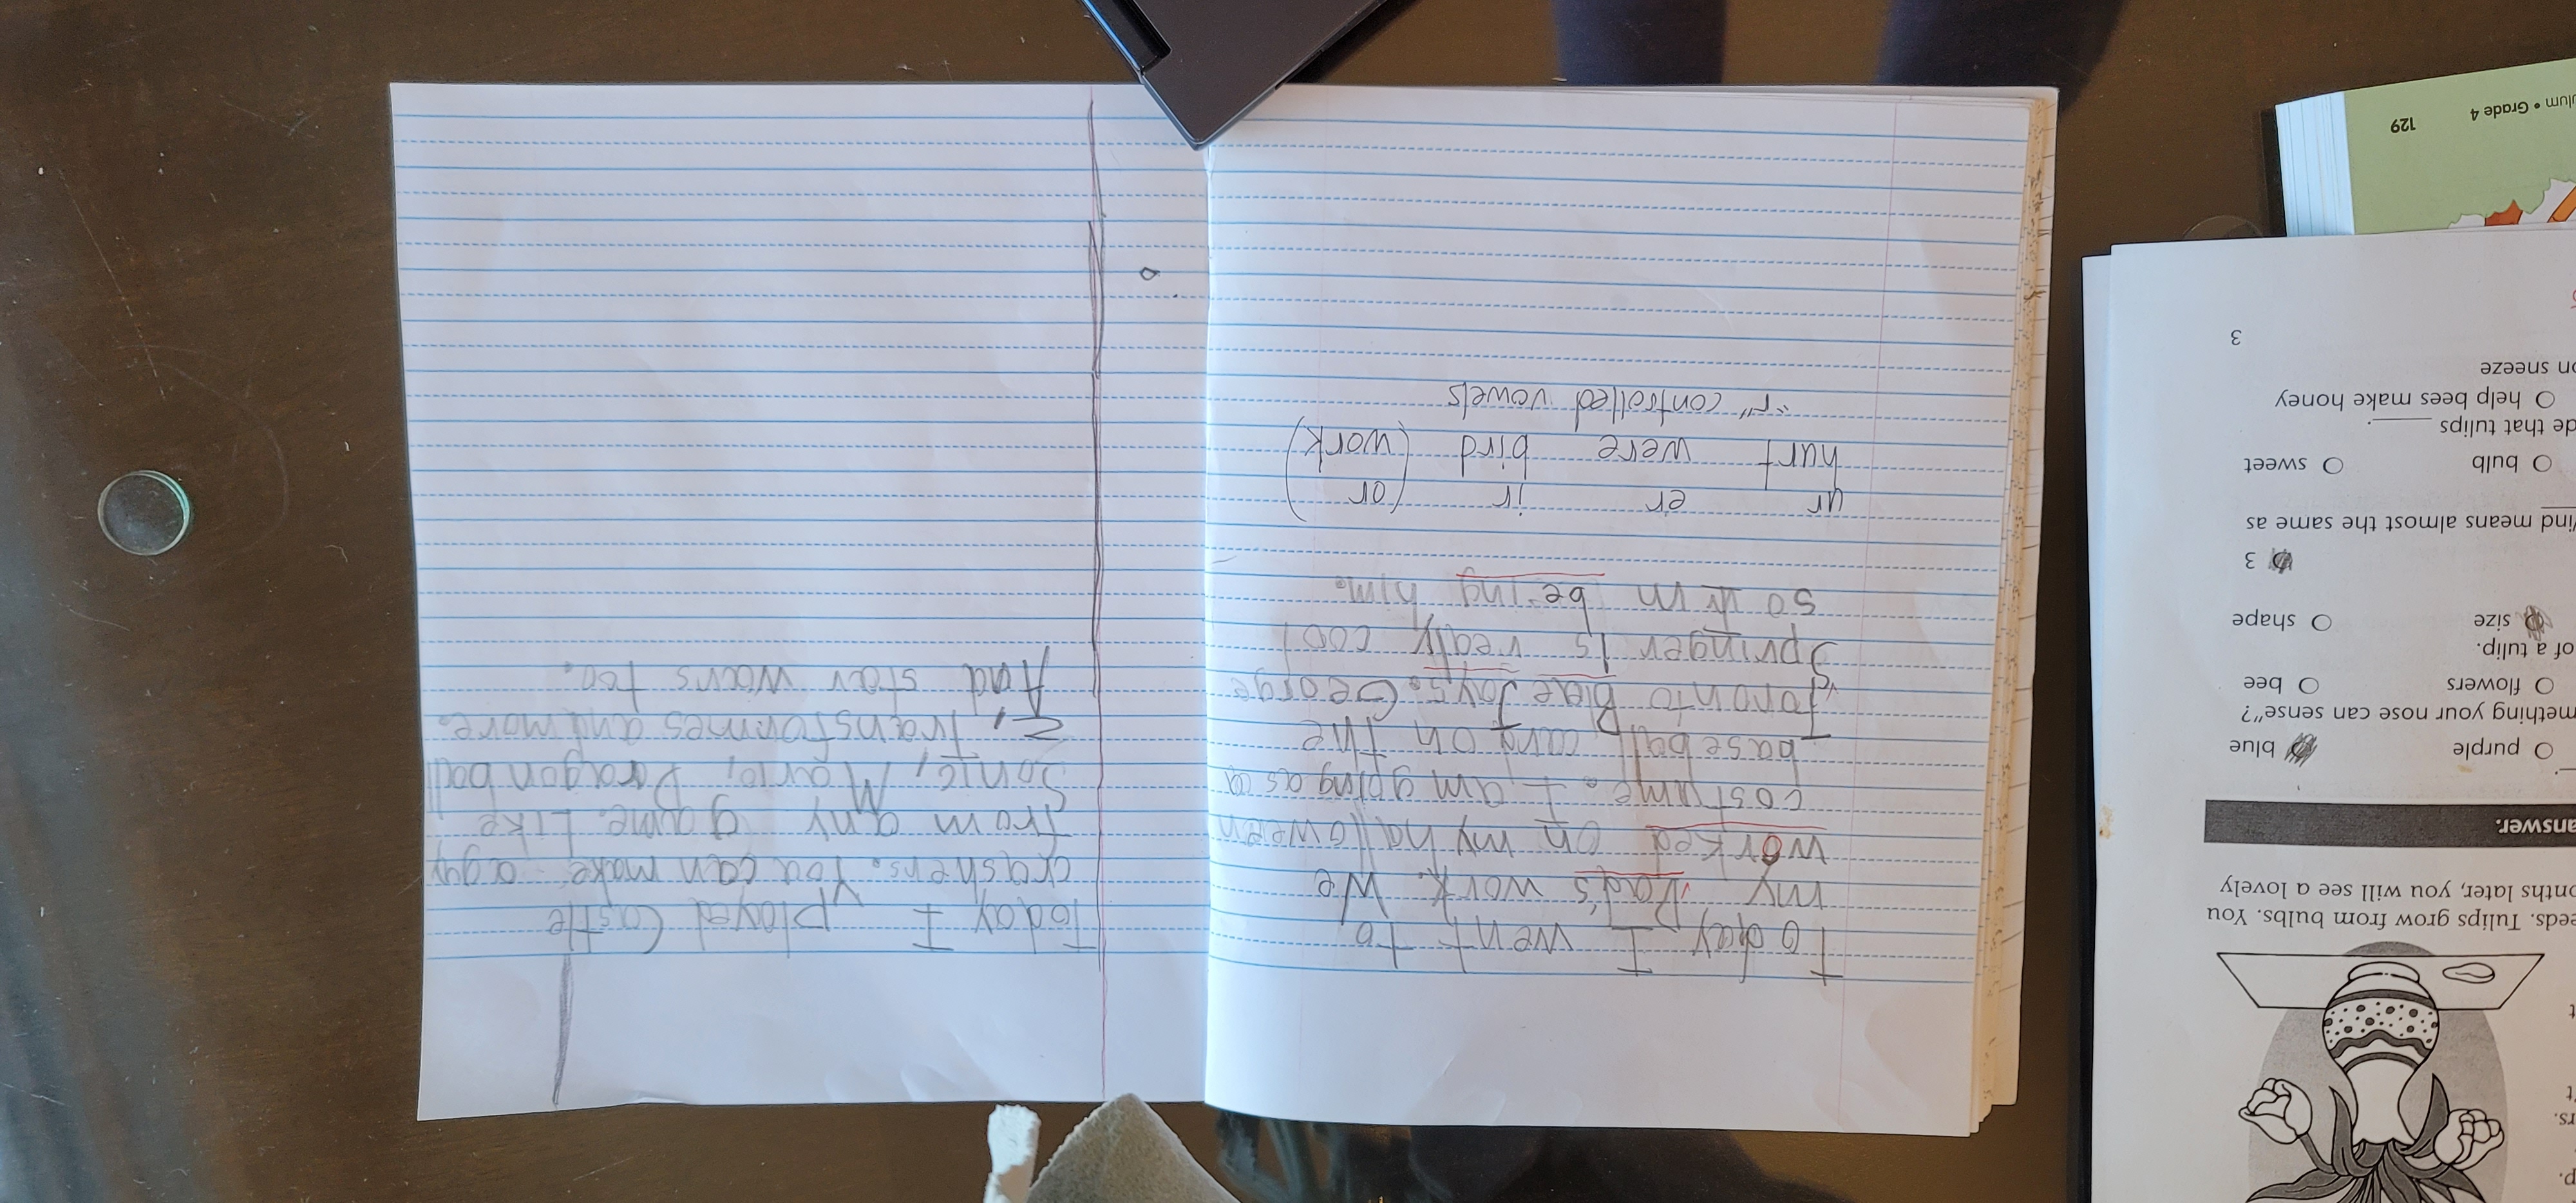 Today I went to
my Dad's work. We
worked on my halloween
costume. I am going as a
baseball
Toronto Blue Jays. George
Springer is really cool
so being him.
ur er ir (or
hurt were bird (work)
"r" controlled vowels
Today I played Castle
crashers. You can make a guy
from any game. Like
Sonic, Mario, Dragon ball
Z, transformes and more.
And star wars too.
ulum • Grade 4 129
eeds. Tulips grow from bulbs. You
onths later, you will see a lovely
answer.
purple blue
mething your nose can sense"?
flowers bee
of a tulip.
size shape
3
means almost the same as
bulb sweet
de that tulips ______.
help bees make honey
on sneeze
3